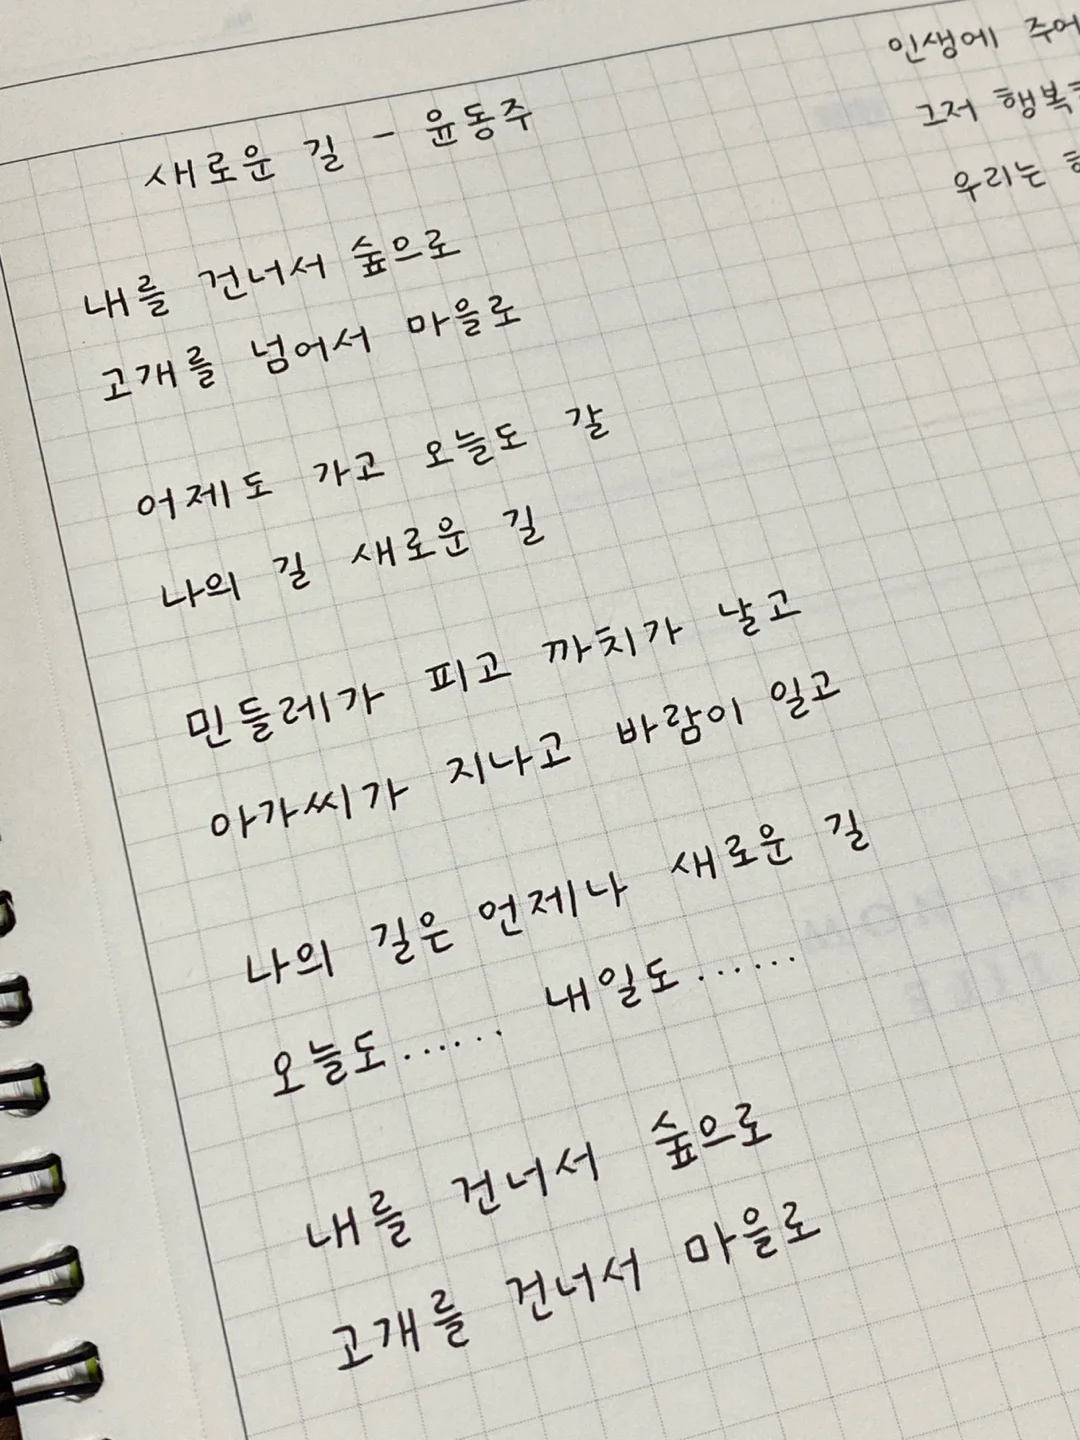 새로운 길 - 윤동주
내를 건너서 숲으로
고개를 넘어서 마을로
어제도 가고 오늘도 갈
나의 길 새로운 길
민들레가 피고 까치가 날고
아가씨가 지나고 바람이 일고
나의 길은 언제나 새로운 길
오늘도...... 내일도......
내를 건너서 숲으로
고개를 건너서 마을로
인생에
그저
우리는